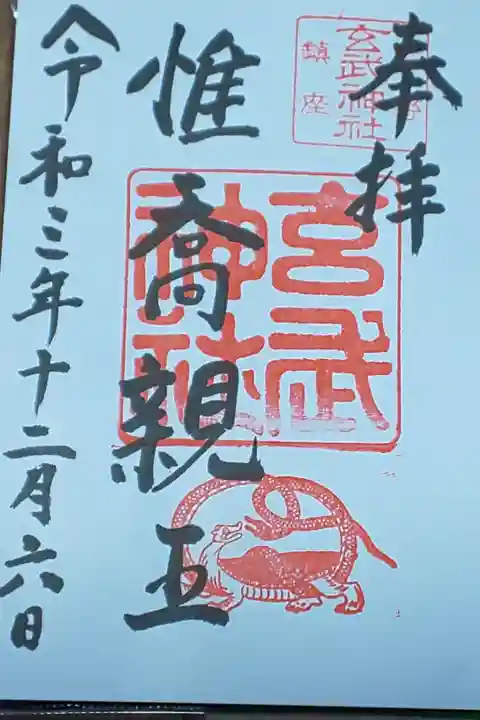 奉拝
玄武神社
鎮座
玄武
神社
惟喬親王
令和三年十二月六日